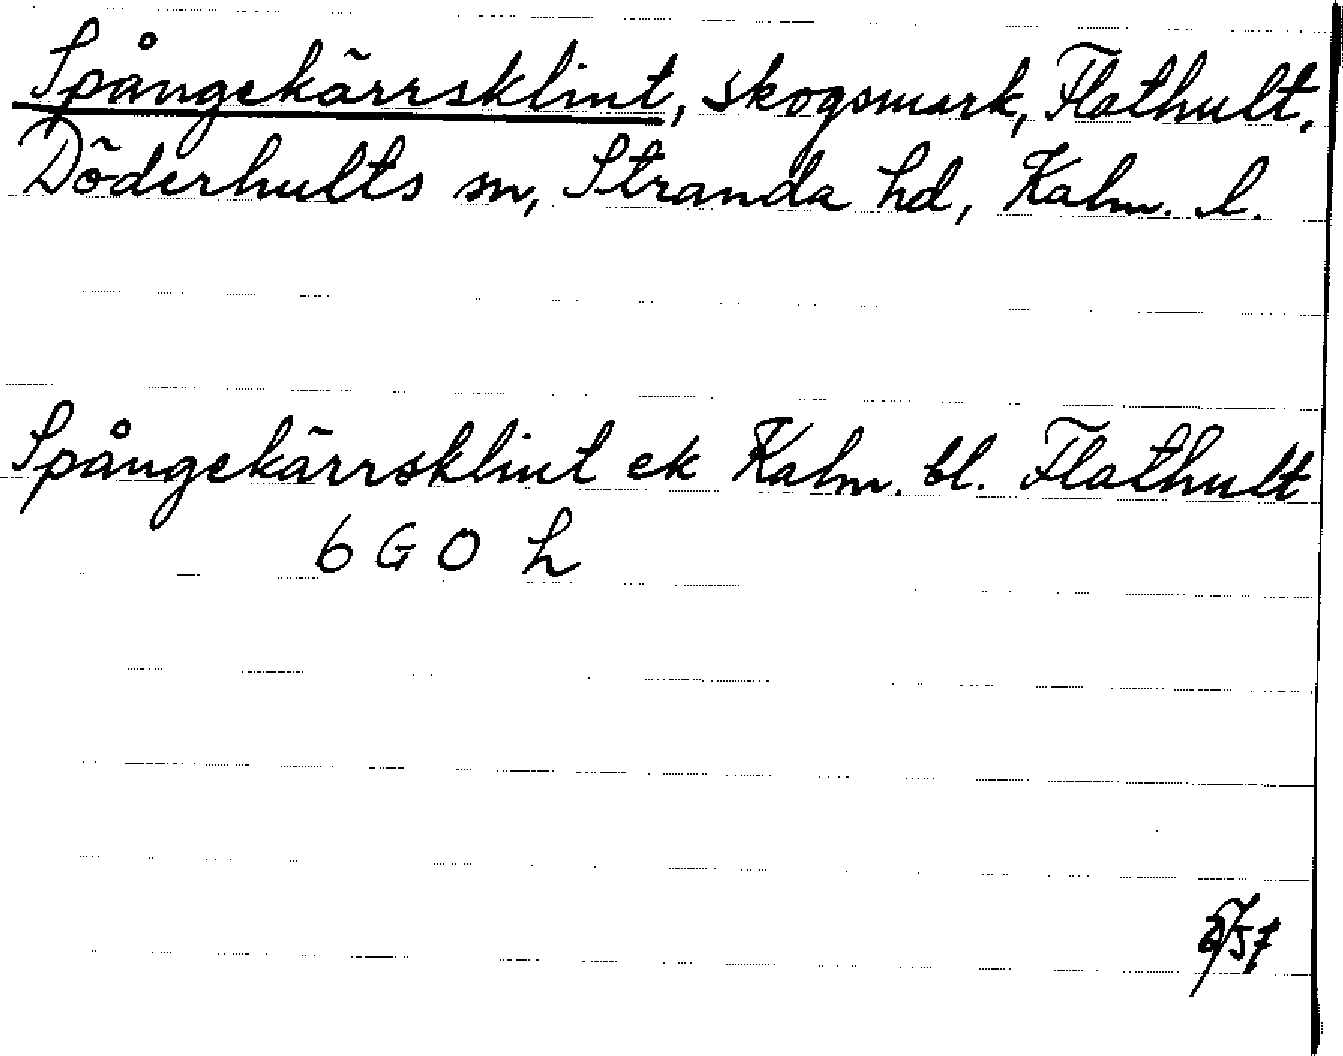 Spångekärrsklint, skogsmark, Flathult.
Döderhults sn, Stranda hd, Kalm. l.
Spångekärrsklint ek Kalm. bl. Flathult
6 G O h